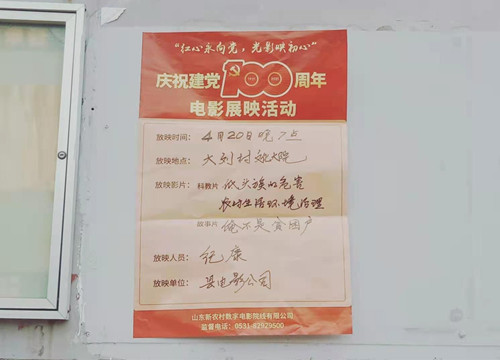 “红心永向党，光影映初心”
庆祝建党100周年
电影展映活动
放映时间：4月20日晚7点
放映地点：大刘村文大院
放映影片：科教片 低头族的危害
农村生活环境治理
故事片 俺不是贫困户
放映人员：纪康
放映单位：县电影公司
山东新农村数字电影院线有限公司
监督电话：0531-82929500